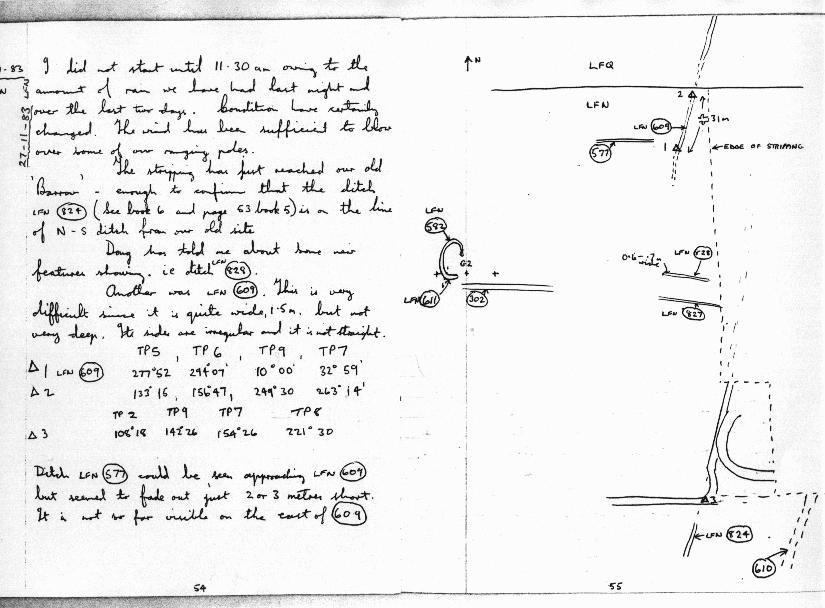 27-11-83 LFN
I did not start until 11.30 am owing to the
amount of rain we have had last night and
over the last two days. Condition have certainly
changed. The wind has been sufficient to blow
over some of our ranging poles.
The stripping has just reached our old
'Barrow' - enough to confirm that the ditch
LFN 824 (See book 6 and page 53 book 5) is on the line
of N-S ditch from our old site
Doug has told me about some new
features showing. i.e ditch LFN 828.
Another was LFN 609. This is very
difficult since it is quite wide, 1.5m. but not
very deep. Its sides are irregular and it is not straight.
TP5, TP6, TP9, TP7
Δ1 LFN 609 277°52 294°07' 10°00' 32°59'
Δ2 133°15, 156°47, 249°30 263°14'
TP2 TP9 TP7 TP8
Δ3 108°18 142°26 154°26 221°30
Ditch LFN 577 could be seen approaching LFN 609
but seemed to fade out just 2 or 3 metres short.
It is not so far visible on the east of 609
54
N
LFQ
LFN
2
LFN 609
31m
1
577
EDGE OF STRIPPING
LFN
582
G2
LFN 611
302
wide
LFN 828
LFN 827
3
LFN 824
610
55